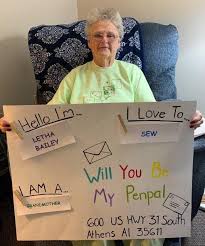 Hello I'm...
LETHA
BAILEY
I Love To...
SEW
I AM A...
GRANDMOTHER
Will You Be
My Penpal
600 US HWY 31 South
Athens Al 35611